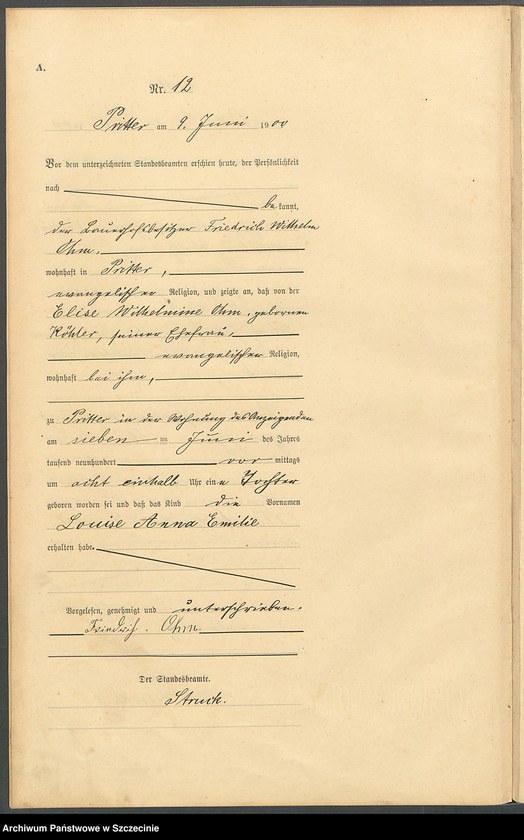 A.
Nr. 12
Pritter am 9. Juni 1900
Vor dem unterzeichneten Standesbeamten erschien heute, der Persönlichkeit
nach
bekannt,
der Bauerhofsbesitzer Friedrich Wilhelm
Ohm,
wohnhaft in Pritter,
evangelischer Religion, und zeigte an, daß von der
Elise Wilhelmine Ohm, geborenen
Köhler, seiner Ehefrau,
evangelischer Religion,
wohnhaft bei ihm,
zu Pritter in der Wohnung des Anzeigenden
am sieben Juni des Jahres
tausend neunhundert vor mittags
um acht einhalb Uhr eine Tochter
geboren worden sei und daß das Kind die Vornamen
Louise Anna Emilie
erhalten habe.
Vorgelesen, genehmigt und unterschrieben.
Friedrich Ohm
Der Standesbeamte.
Struck.
Archiwum Państwowe w Szczecinie